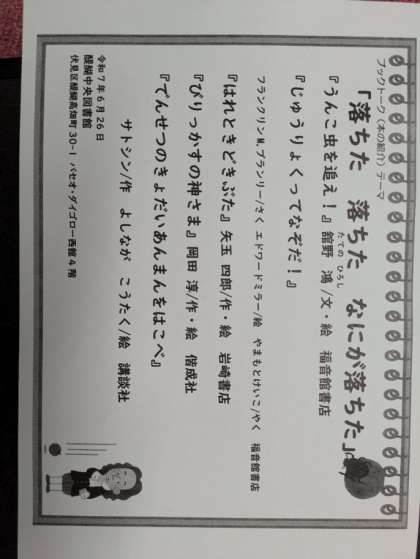 ブックトーク(本の紹介)テーマ
「落ちた 落ちた なにが落ちた」
『うんこ虫を追え!』舘野 鴻/文・絵 福音館書店
たての ひろし
『じゅうりょくってなぞだ!』
フランクリンM.ブランリー/さく エドワードミラー/絵 やまもとけいこ/やく 福音館書店
『はれときどきぶた』矢玉 四郎/作・絵 岩崎書店
『びりっかすの神さま』岡田 淳/作・絵 偕成社
『でんせつのきょだいあんまんをはこべ』
サトシン/作 よしなが こうたく/絵 講談社
令和7年6月26日
醍醐中央図書館
伏見区醍醐高畑町30-1 パセオ・ダイゴロー西館4階